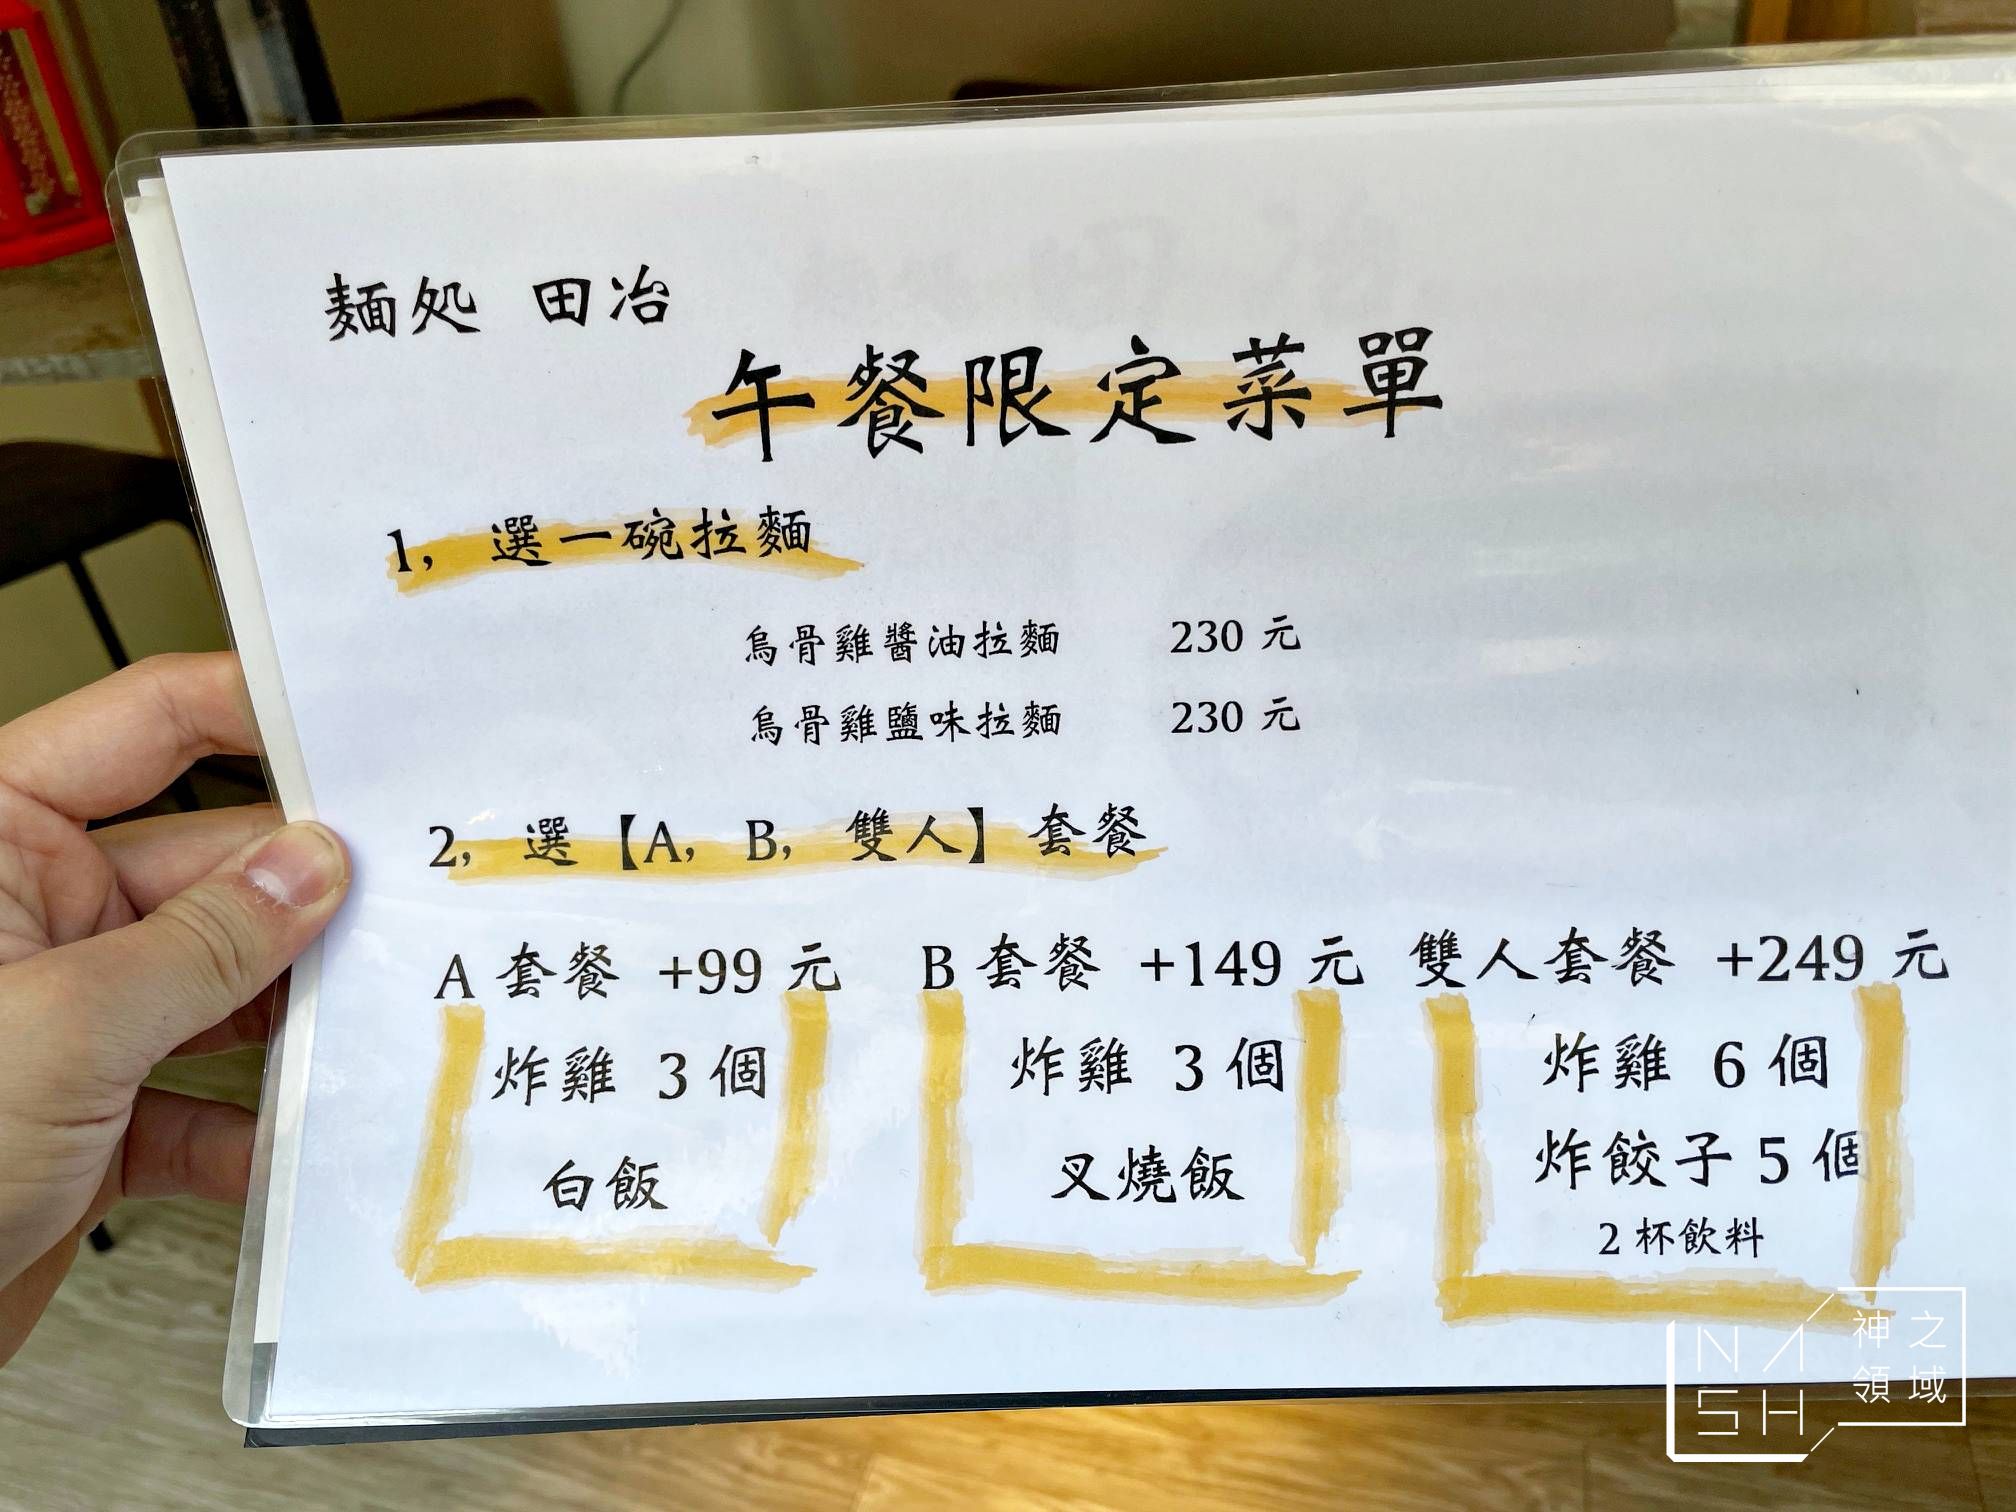 麵処 田冶
午餐限定菜單
1, 選一碗拉麵
烏骨雞醬油拉麵 230 元
烏骨雞鹽味拉麵 230 元
2, 選【A, B, 雙人】套餐
A 套餐 +99 元
炸雞 3 個
白飯
B 套餐 +149 元
炸雞 3 個
叉燒飯
雙人套餐 +249 元
炸雞 6 個
炸餃子 5 個
2 杯飲料
NASH
神之領域